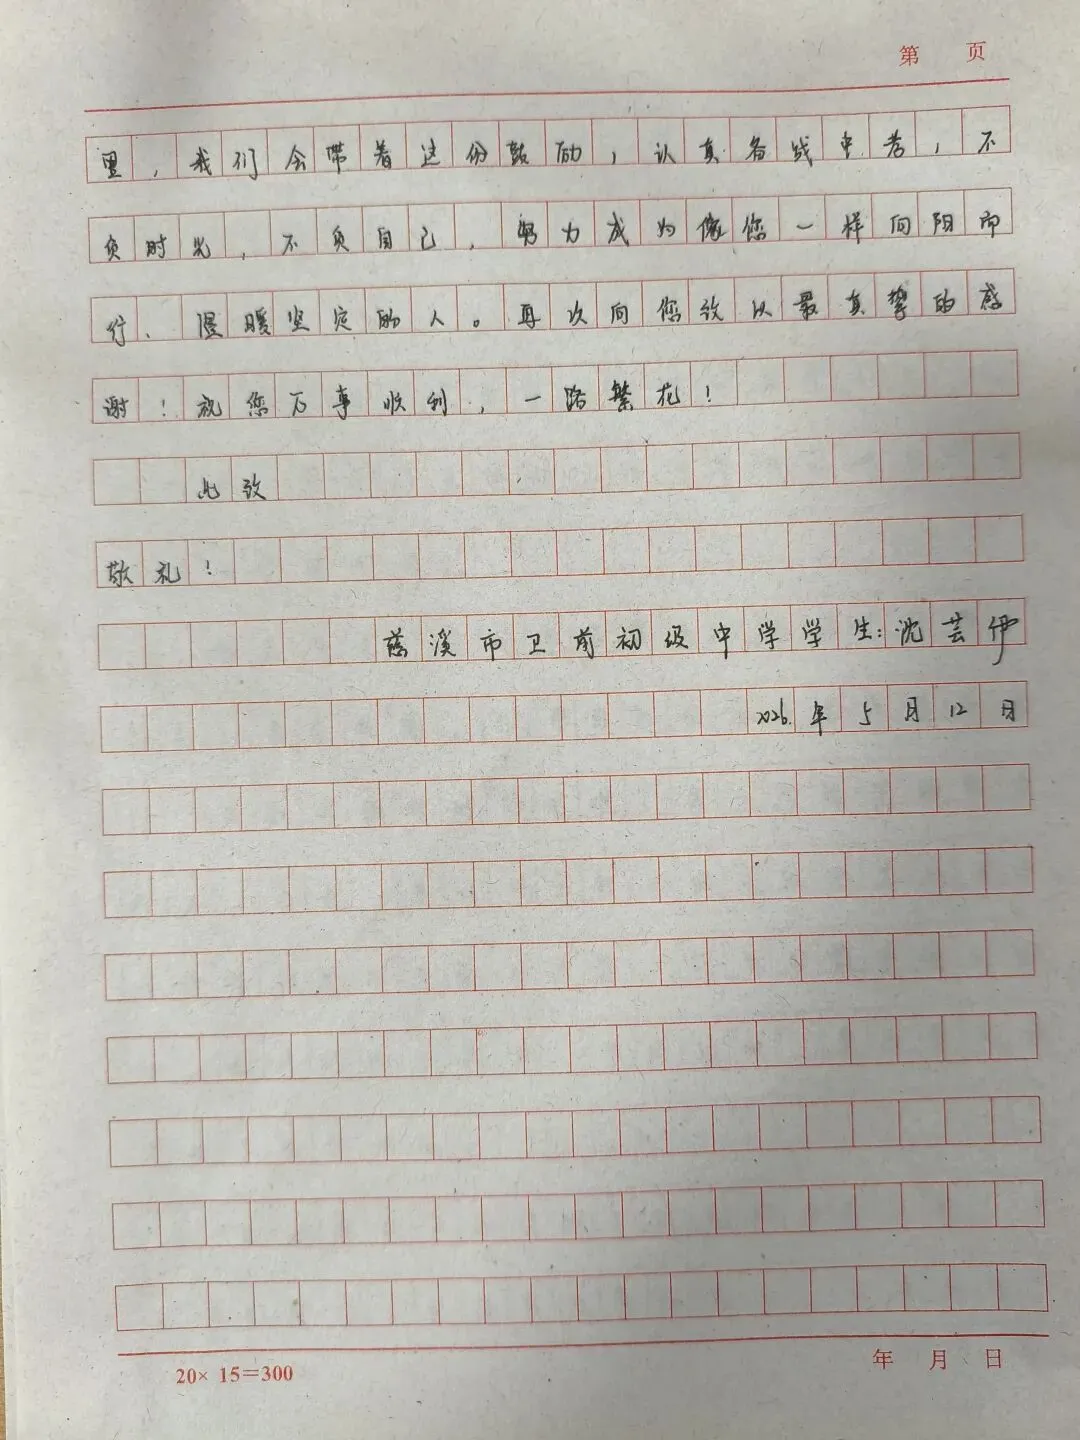 第 页
里，我们会带着这份鼓励，认真备战中考，不
负时光，不负自己，努力成为像您一样向阳而
行、温暖坚定的人。再次向您致以最真挚的感
谢！祝您万事顺利，一路繁花！
此致
敬礼！
慈溪市卫前初级中学学生：沈芸伊
2026.年5月12日
20×15=300
年 月 日